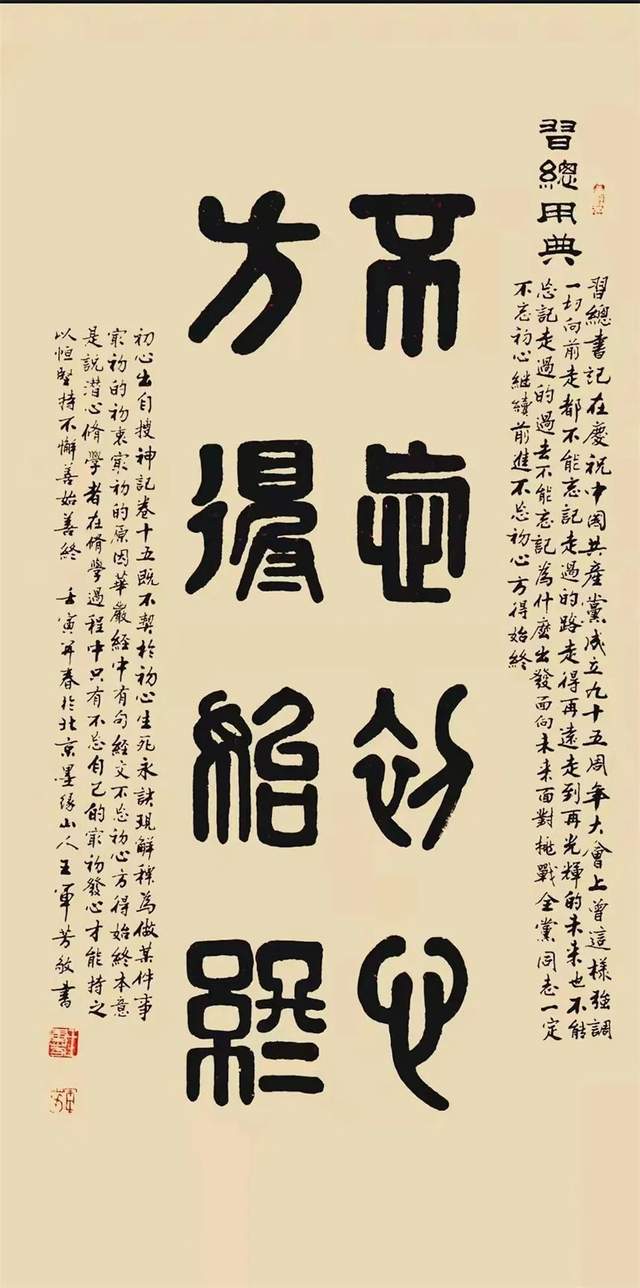 習總用典
習總書記在慶祝中國共產黨成立九十五周年大會上曾這樣強調
一切向前走都不能忘記走過的路走得再遠走到再光輝的未來也不能
忘記走過的過去不能忘記為什麼出發面向未來面對挑戰全黨同志一定
不忘初心繼續前進不忘初心方得始終
不忘初心
方得始終
初心出自搜神記卷十五既不契於初心生死永訣現解釋為做某件事
冣初的初衷冣初的原因華嚴經中有句經文不忘初心方得始終本意
是說潛心脩學者在脩學過程中只有不忘自己的冣初發心才能持之
以恒堅持不懈善始善終 壬寅开春於北京墨緣山人王軍芳敬書